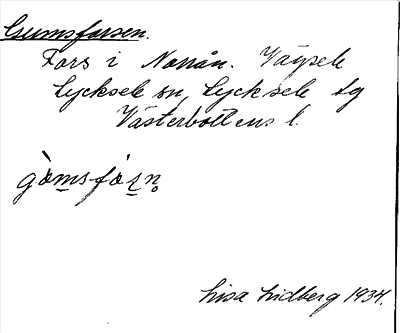 Gumsforsen.
Fors i Norrån. Vägsele
Lycksele sn, Lycksele lg
Västerbottens l.
gòmsfòṣṇ
Lisa Lidberg 1934.